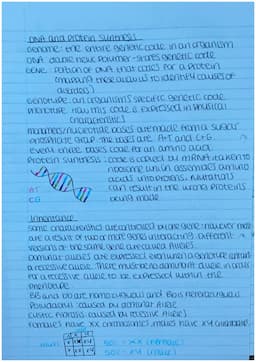 DNA and Protein Synthesis
Genome: the entire genetic code in an organism
DNA: double helix polymer - stores genetic code
Gene: portion of DNA that codes for a protein
(mapping these allows to identify causes of
diseases)
Genotype: an organism's specific genetic code
Phenotype: how this code is expressed in physical
characteristics
monomers/nucleotide bases are made from a sugar
phosphate group. The bases are A+T and C+G.
Every three bases code for an amino acid
Protein synthesis: code is copied by mRNA + taken to
ribosome which assembles amino
acids into proteins. Mutations
can result in the wrong proteins
being made
AT
CG
Inheritance
Some characteristics are controlled by one gene: however most
are a result of two or more genes interacting. Different
versions of the same gene are called alleles.
Dominant alleles are expressed even when a genotype contains
a recessive allele. There must be no dominant allele in order
for a recessive allele to be expressed within the
phenotype
BB and bb are homozygous and Bb is heterozygous.
Polydactyly: caused by dominant allele
Cystic fibrosis: caused by recessive allele
Females have XX chromosomes, males have XY chromosomes
50% - XX (female)
50% - XY (male)